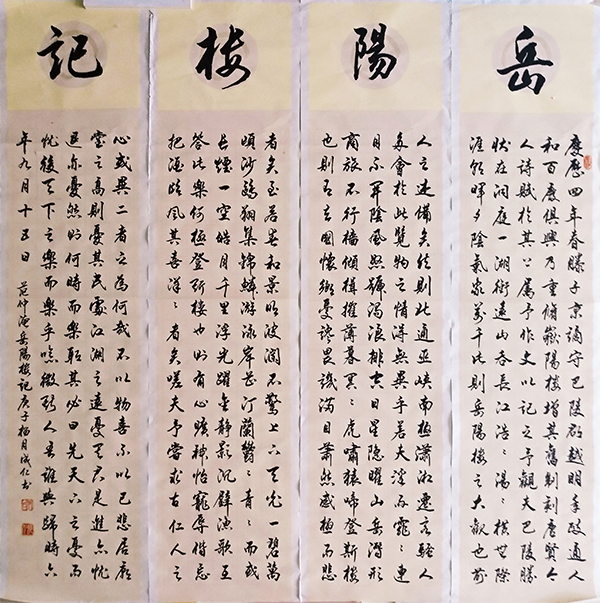 岳
慶曆四年春滕子京謫守巴陵郡越明年政通人
和百廢俱興乃重修嶽陽樓增其舊制刻唐賢今
人詩賦於其上屬予作文以記之予觀夫巴陵勝
狀在洞庭一湖銜遠山吞長江浩浩湯湯橫無際
涯朝暉夕陰氣象萬千此則岳陽樓之大觀也前
陽
人之述備矣然則北通巫峽南極瀟湘遷客騷人
多會於此覽物之情得無異乎若夫淫雨霏霏連
月不開陰風怒號濁浪排空日星隱曜山岳潛形
商旅不行檣傾楫摧薄暮冥冥虎嘯猿啼登斯樓
也則有去國懷鄉憂讒畏譏滿目蕭然感極而悲
樓
者矣至若春和景明波瀾不驚上下天光一碧萬
頃沙鷗翔集錦鱗游泳岸芷汀蘭鬱鬱青青而或
長煙一空皓月千里浮光躍金靜影沉璧漁歌互
答此樂何極登斯樓也則有心曠神怡寵辱偕忘
把酒臨風其喜洋洋者矣嗟夫予嘗求古仁人之
記
心或異二者之為何哉不以物喜不以己悲居廟
堂之高則憂其民處江湖之遠憂其君是進亦憂
退亦憂然則何時而樂耶其必曰先天下之憂而
憂後天下之樂而樂乎噫微斯人吾誰與歸時六
年九月十五日 范仲淹岳陽樓記庚子梅月成仁書